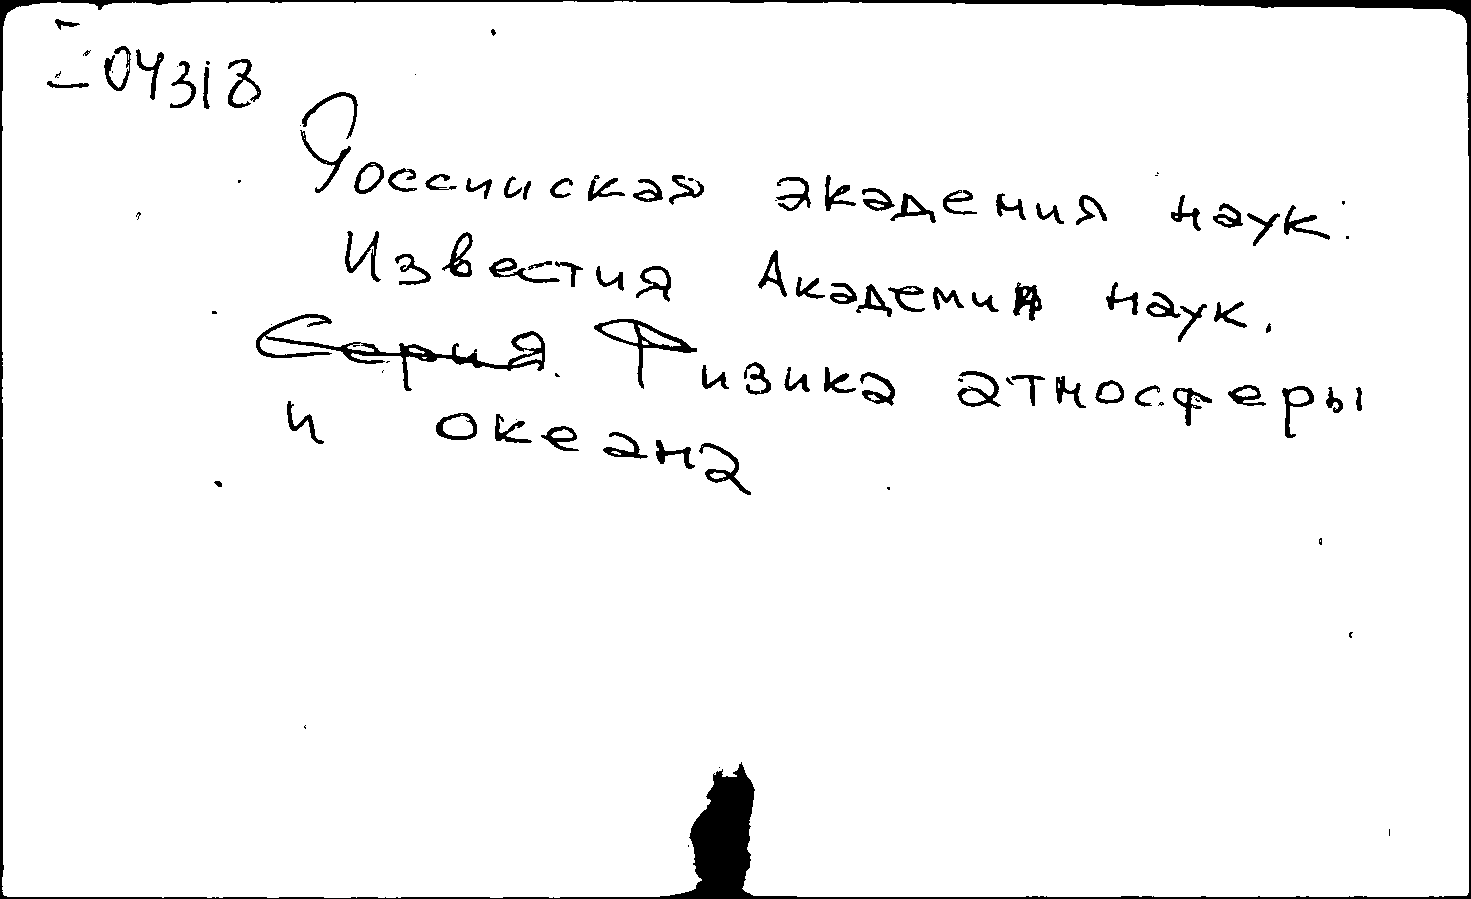 04318
Россииская академия наук.
Известия Академия наук.
Серия. Физика атмосферы
и океана